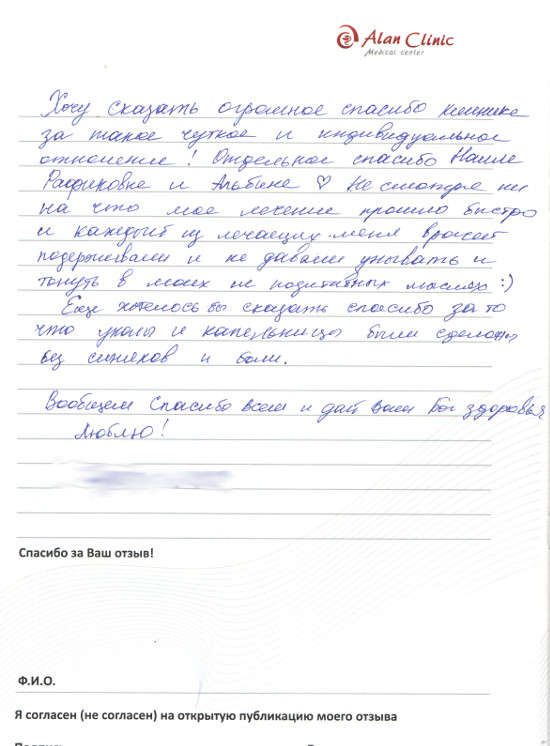 Alan Clinic
Medical center
Хочу сказать огромное спасибо клинике
за такое чуткое и индивидуальное
отношение! Отдельное спасибо Наиле
Рафиковне и Альбине ♡ Не смотря ни
на что мое лечение прошло быстро
и каждый из лечащих меня врачей
подерживали и не давали унывать и
тонуть в моих не позитивных мыслях :)
Еще хотелось бы сказать спасибо за то
что уколы и капельницы были сделаны
без синяков и боли.
Вообщем Спасибо всем и дай вам Бог здоровья
Люблю!
Спасибо за Ваш отзыв!
Ф.И.О.
Я согласен (не согласен) на открытую публикацию моего отзыва